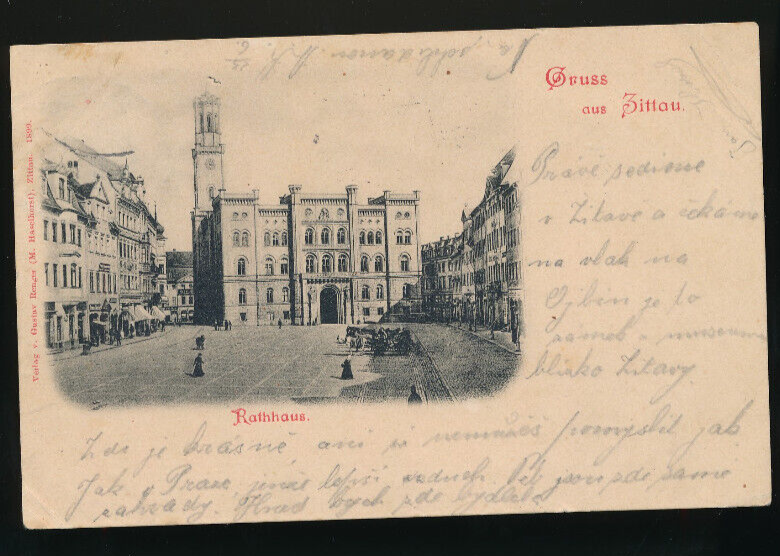 Gruss
aus Zittau.
Verlag v. Gustav Renger (M. Haselhorst), Zittau. 1899.
Právě sedíme
v Žitavě a čekáme
na vlak na
Ojbín je to
zámek a museum
blízko Žitavy.
Rathhaus.
Zde je krásně, ani si nemůžeš pomyslit jak.
Jak v Praze, jenže lepší vzduch, jsou zde samé
zahrady. Hned bych zde